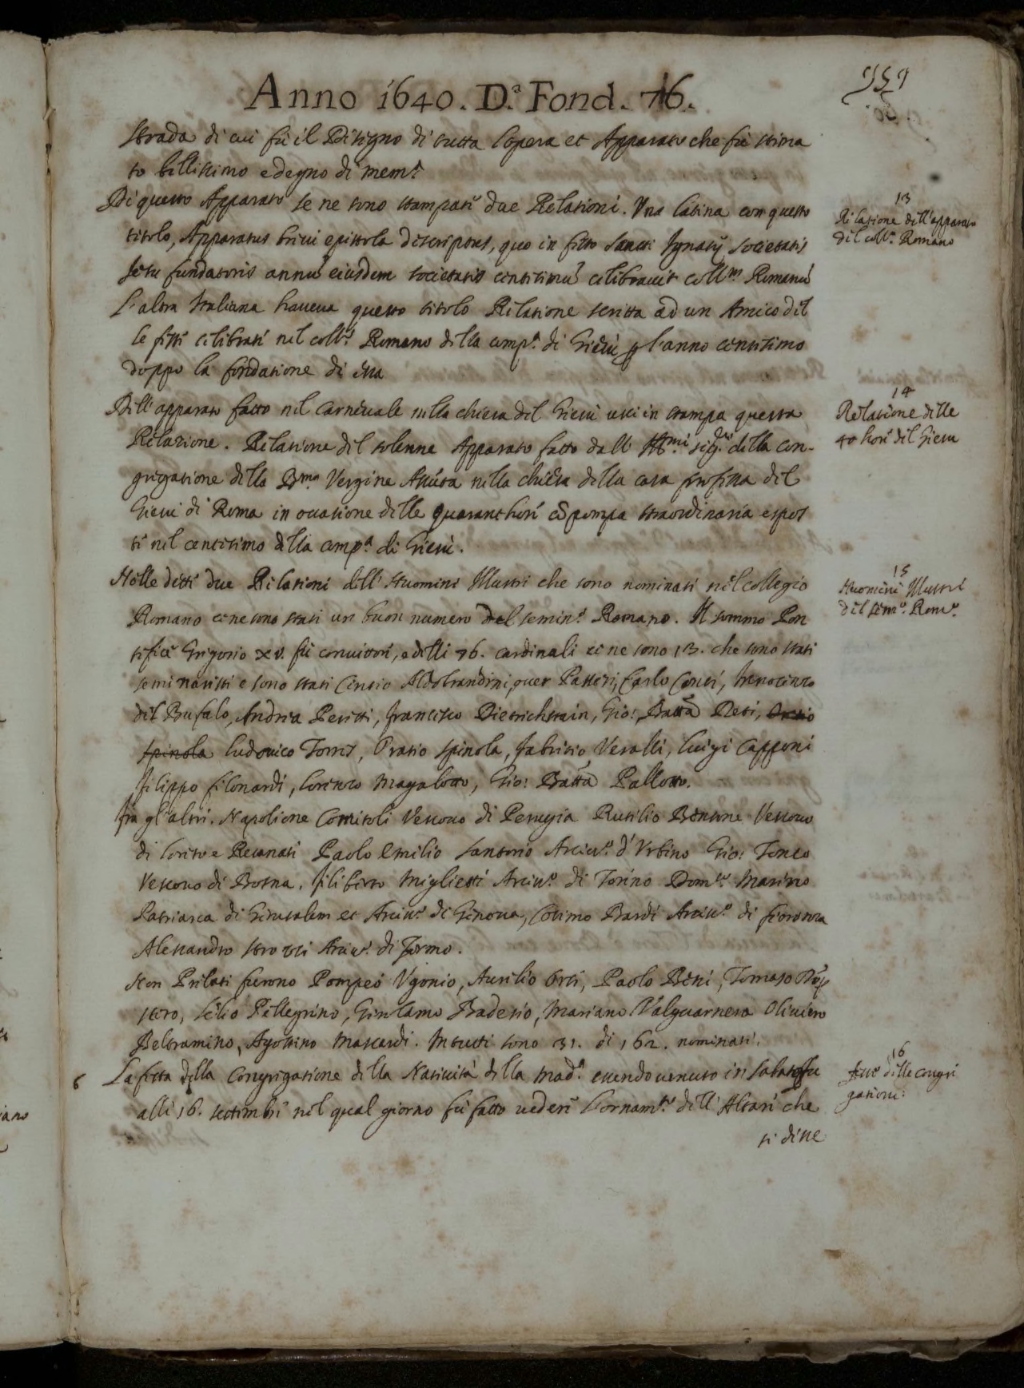 Anno 1640. D.ª Fond. 76.
Strada di cui fù il Disegno di tutta l'opera et Apparato che fù stima
to bellissimo e degno di mem.ª
Di questo Apparato se ne sono stampati due Relationi. Una latina con questo
titolo, Apparatus brevi epistola descriptus, quo in festo Sancti Ignatij Societatis
Jesu fundatoris annū eiusdem societatis centesimū celebravit coll.m Romanū
L'altra Italiana haveva questo titolo Relatione scritta ad un Amico del
le feste celebrate nel coll.º Romano della comp.ª di Giesù per l'anno centesimo
doppo la fondatione di essa
Dell'apparato fatto nel carnevale nella chiesa del Giesù uscì in stampa questa
Relazione. Relatione del solenne Apparato fatto dalli Ill.mi sig.ri della con-
gregatione della B.ma Vergine Assūta nella chiesa della casa professa del
Giesù di Roma in occasione delle quaranthori cō pompa straordinaria espos
ti nel centesimo della comp.ª di Giesù.
Nelle dette due Relationi delli Huomini Illustri che sono nominati nel collegio
Romano ce ne sono stati un buon numero del semin.º Romano. Il sommo Pon
tefice Gregorio XV. fù convittore, e delli 76. cardinali ce ne sono 13. che sono stati
seminaristi e sono stati Cinsio Aldobrandini, over Passeri, Carlo Conti, Innocentio
del Bufalo, Andrea Peretti, Francesco Dietrichstain, Gio: Batta Deti, Oratio
Spinola Ludovico Torres, Oratio Spinola, Fabritio Veralli, Luigi Capponi
Filippo Filonardi, Lorenzo Magalotto, Gio: Batta Pallotto.
Fra gl'altri. Napolione Comitoli Vescovo di Perugia Rutilio Benzone Vescovo
di Loreto e Recanati Paolo Emilio Santorio Arciv.º d'Urbino Gio: Tonco
Vescovo di Bosna, Filiberto Miglietti Arciv.º di Torino Dom.co Marino
Patriarca di Gerusalem et Arciv.º di Genova, Cosimo Bardi Arciv.º di Fiorenza
Alessandro Strozzi Arciv.º di Fermo.
Non Prelati furono Pompeo Ugonio, Aurelio Orsi, Paolo Beni, Tomaso
stero, Lelio Pellegrino, Girolamo Baderio, Mariano Valguarnera Oliviero
Beltramino, Agostino Mascardi. In tutti sono 31. di 162. nominati.
La festa della Congregatione della Natività della Mad.ª essendo venuto in sabato fu
alli 16. settembre nel qual giorno fù fatto vedere l'ornam.to dell'Altare che
si disse
13
Relatione dell'apparato
del coll.º Romano
14
Relatione delle
40 hore del Giesù
15
Huomini Illustri
del sem.º Rom.º
16
feste delle congre
gationi.